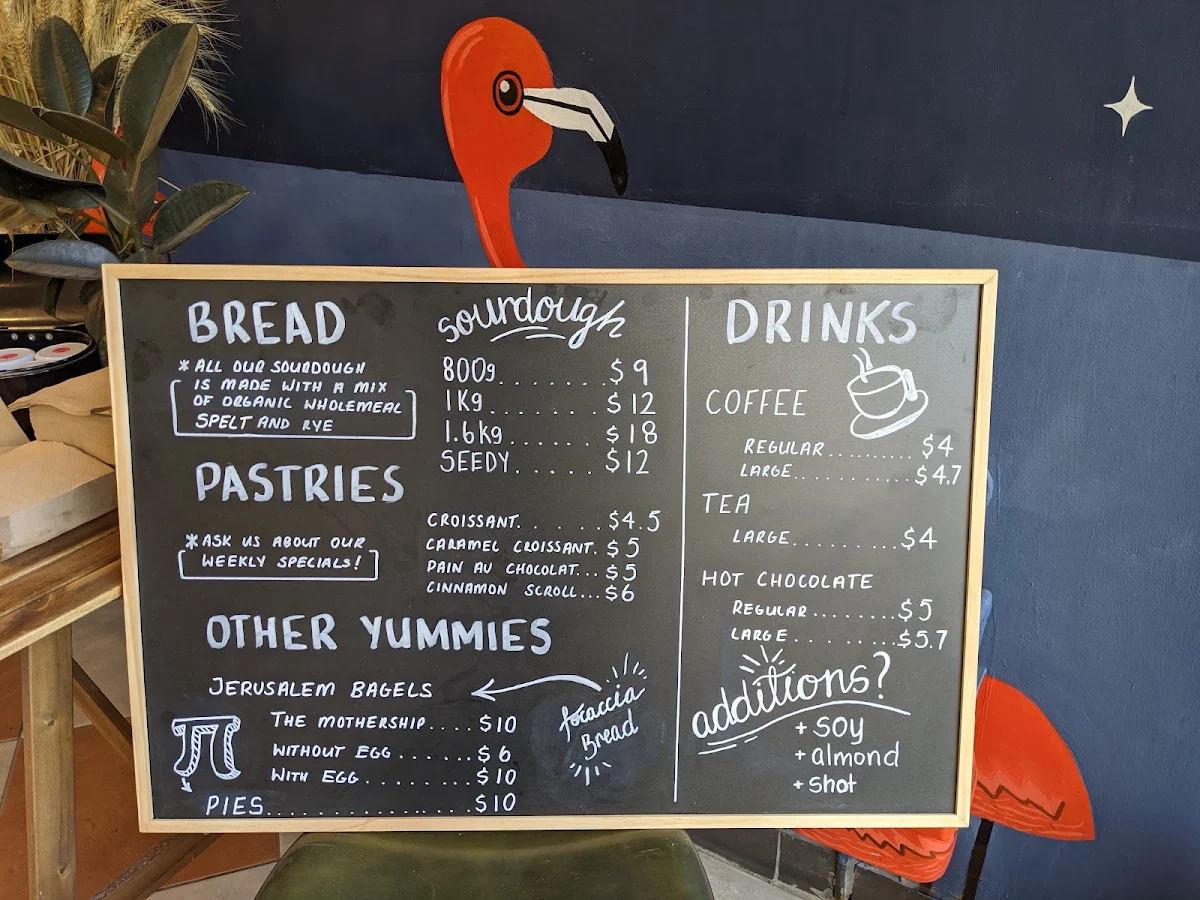 BREAD
* ALL OUR SOURDOUGH
IS MADE WITH A MIX
OF ORGANIC WHOLEMEAL
SPELT AND RYE
sourdough
800g....... $9
1Kg....... $12
1.6kg...... $18
SEEDY..... $12
PASTRIES
* ASK US ABOUT OUR
WEEKLY SPECIALS!
CROISSANT...... $4.5
CARAMEL CROISSANT. $5
PAIN AU CHOCOLAT... $5
CINNAMON SCROLL... $6
OTHER YUMMIES
JERUSALEM BAGELS
focaccia
Bread
THE MOTHERSHIP.... $10
WITHOUT EGG...... $6
WITH EGG......... $10
π
PIES................. $10
DRINKS
COFFEE
REGULAR......... $4
LARGE........... $4.7
TEA
LARGE......... $4
HOT CHOCOLATE
REGULAR....... $5
LARGE......... $5.7
additions?
+ soy
+ almond
+ shot